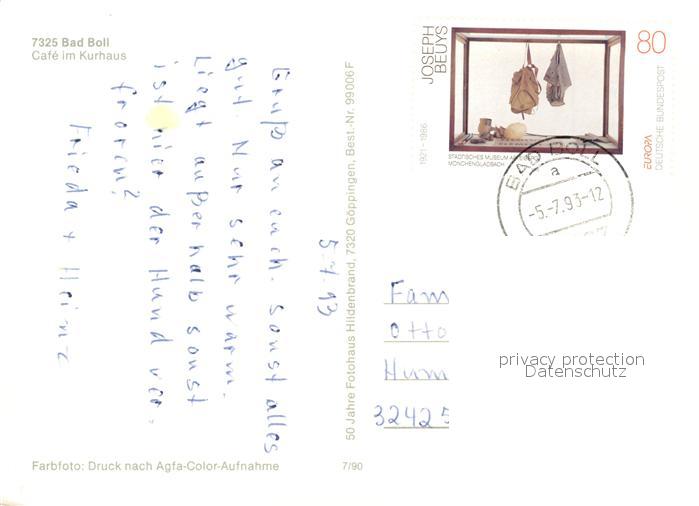 7325 Bad Boll
Café im Kurhaus
5.7.93
Gruß an euch. Sonst alles
gut. Nur sehr warm.
Liegt außerhalb sonst
ist hier der Hund ver.
froren?
Frieda + Heinz
Farbfoto: Druck nach Agfa-Color-Aufnahme
7/90
50 Jahre Fotohaus Hildenbrand, 7320 Göppingen, Best.-Nr. 99006F
JOSEPH
BEUYS
1921 - 1986
80
STÄDTISCHES MUSEUM
MÖNCHENGLADBACH
EUROPA
DEUTSCHE BUNDESPOST
BAD BOLL
a
-5.-7.93-12
Fam
Otto
Hum
32425
privacy protection
Datenschutz